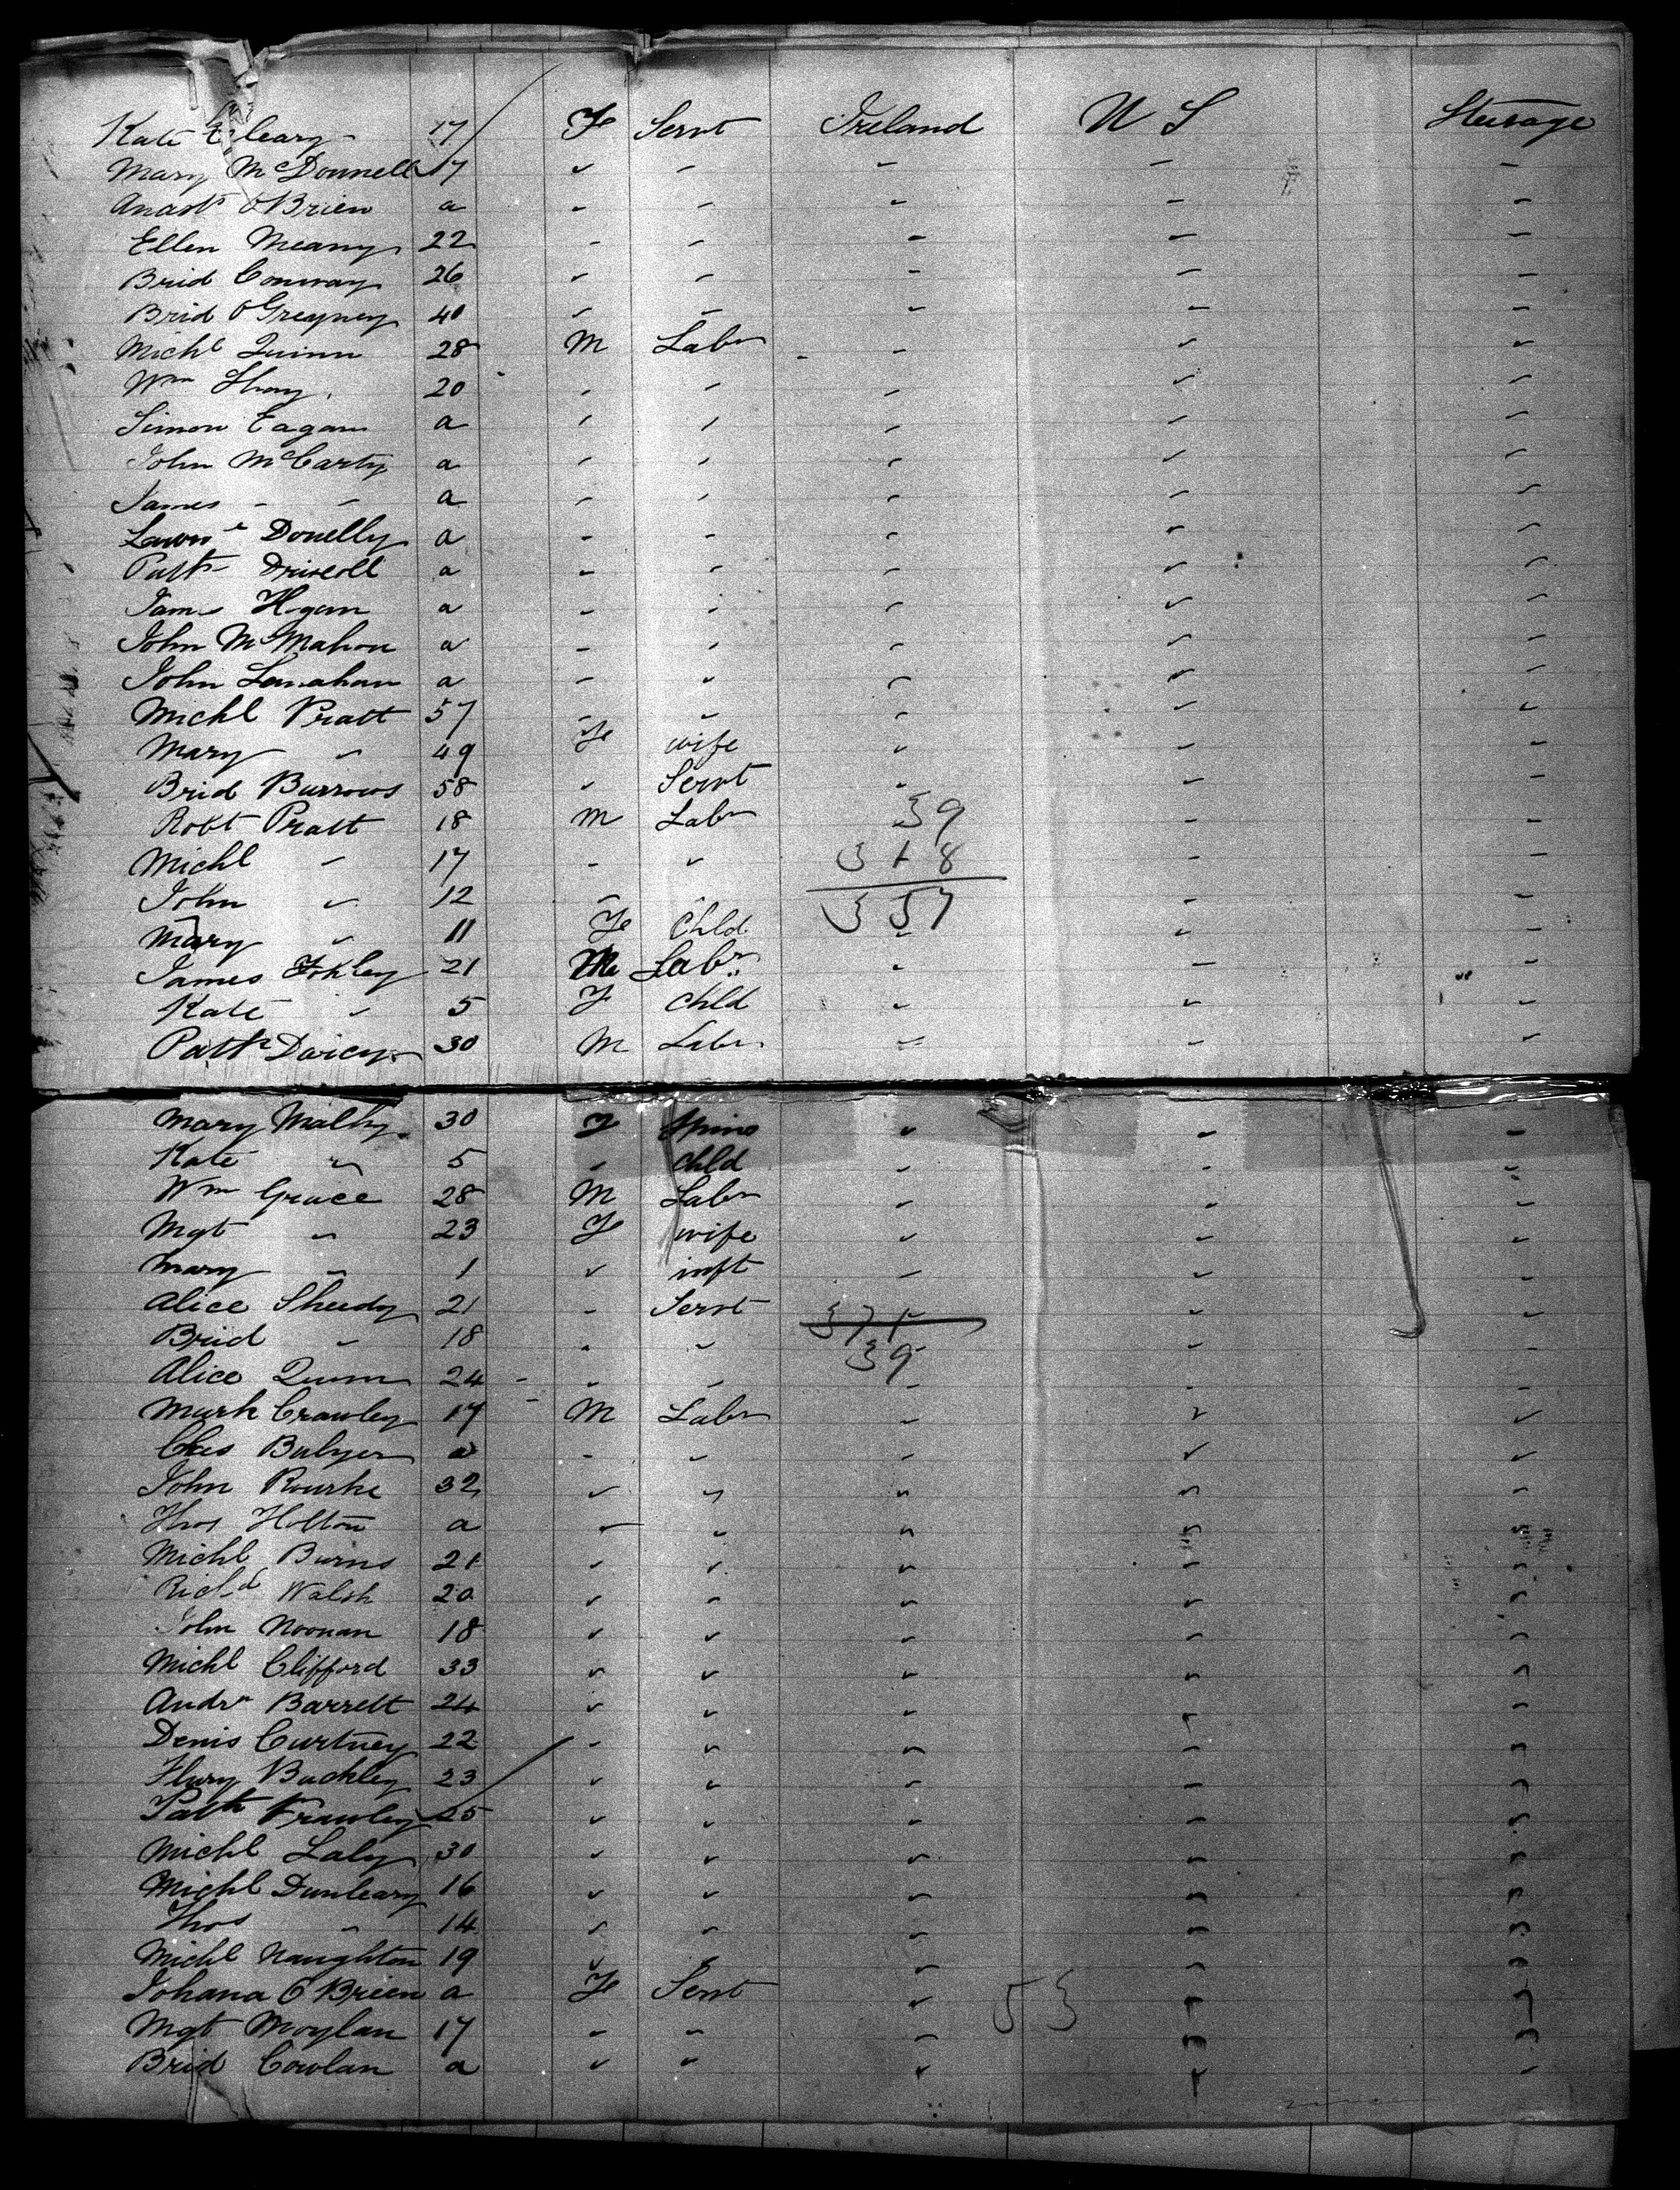 Kate Cleary 17 F Servt Ireland U S Steerage
Mary McDonnell 17 " " " " "
Anast O'Brien a " " " " "
Ellen Meany 22 " " " " "
Brid Conway 26 " " " " "
Brid 40 " " " " "
Michl Quinn 28 M Labr " " "
Wm 20 " " " " "
Simon Eagan a " " " " "
John McCarty a " " " " "
James " a " " " " "
Donelly a " " " " "
Patk Driscoll a " " " " "
James Hogan a " " " " "
John McMahon a " " " " "
John Lanahan a " " " " "
Michl Pratt 57 " " " " "
Mary " 49 F wife " " "
Brid Burrows 58 " Servt " " "
Robt Pratt 18 M Labr 39 " "
Michl " 17 " " 318 " "
John " 12 " " 357 " "
Mary " 11 F Chld " " "
James 21 M Labr " " "
Kate " 5 F chld " " "
Patk Darcy 30 M Labr " " "
Mary Malhy 30 F Spins " " "
Kate " 5 " chld " " "
Wm Grace 28 M Labr " " "
Mgt " 23 F wife " " "
Mary " 1 " inft " " "
Alice Sheedy 21 " Servt 371 " "
Brid " 18 " " 39 " "
Alice Quinn 24 " " " " "
Mark Crawley 17 M Labr " " "
Chas Bulger a " " " " "
John Rourke 32 " " " " "
Thos Holton a " " " " "
Michl Burns 21 " " " " "
Richd Walsh 20 " " " " "
John Noonan 18 " " " " "
Michl Clifford 33 " " " " "
Andrw Barrett 24 " " " " "
Denis Curtney 22 " " " " "
Flury Buckley 23 " " " " "
Patk Frawley 25 " " " " "
Michl Laly 30 " " " " "
Michl Dunleary 16 " " " " "
Thos " 14 " " " " "
Michl Naughton 19 " " " " "
Johana O'Brien a F Servt " 53 " "
Mgt Moylan 17 " " " " "
Brid Cowlan a " " " " "